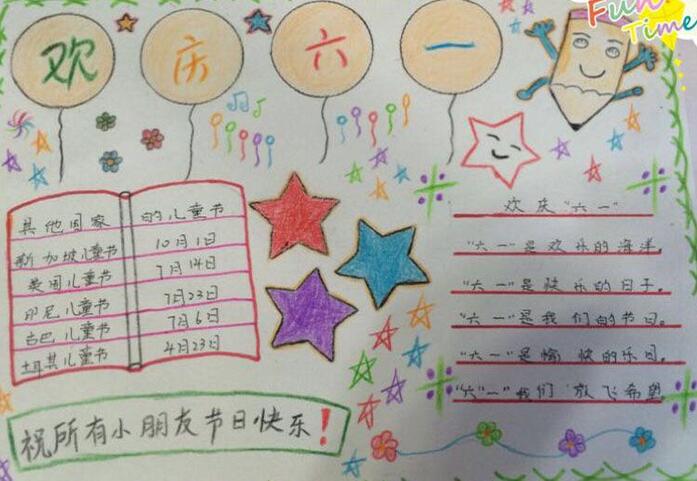 Fun
Time
欢 庆 六 一
其他国家 的儿童节
新加坡儿童节 10月1日
英国儿童节 7月14日
印尼儿童节 7月23日
古巴儿童节 7月6日
土耳其儿童节 4月23日
祝所有小朋友节日快乐！
欢庆“六一”
“六一”是欢乐的海洋。
“六一”是快乐的日子。
“六一”是我们的节日。
“六一”是愉快的乐园。
“六一”我们放飞希望